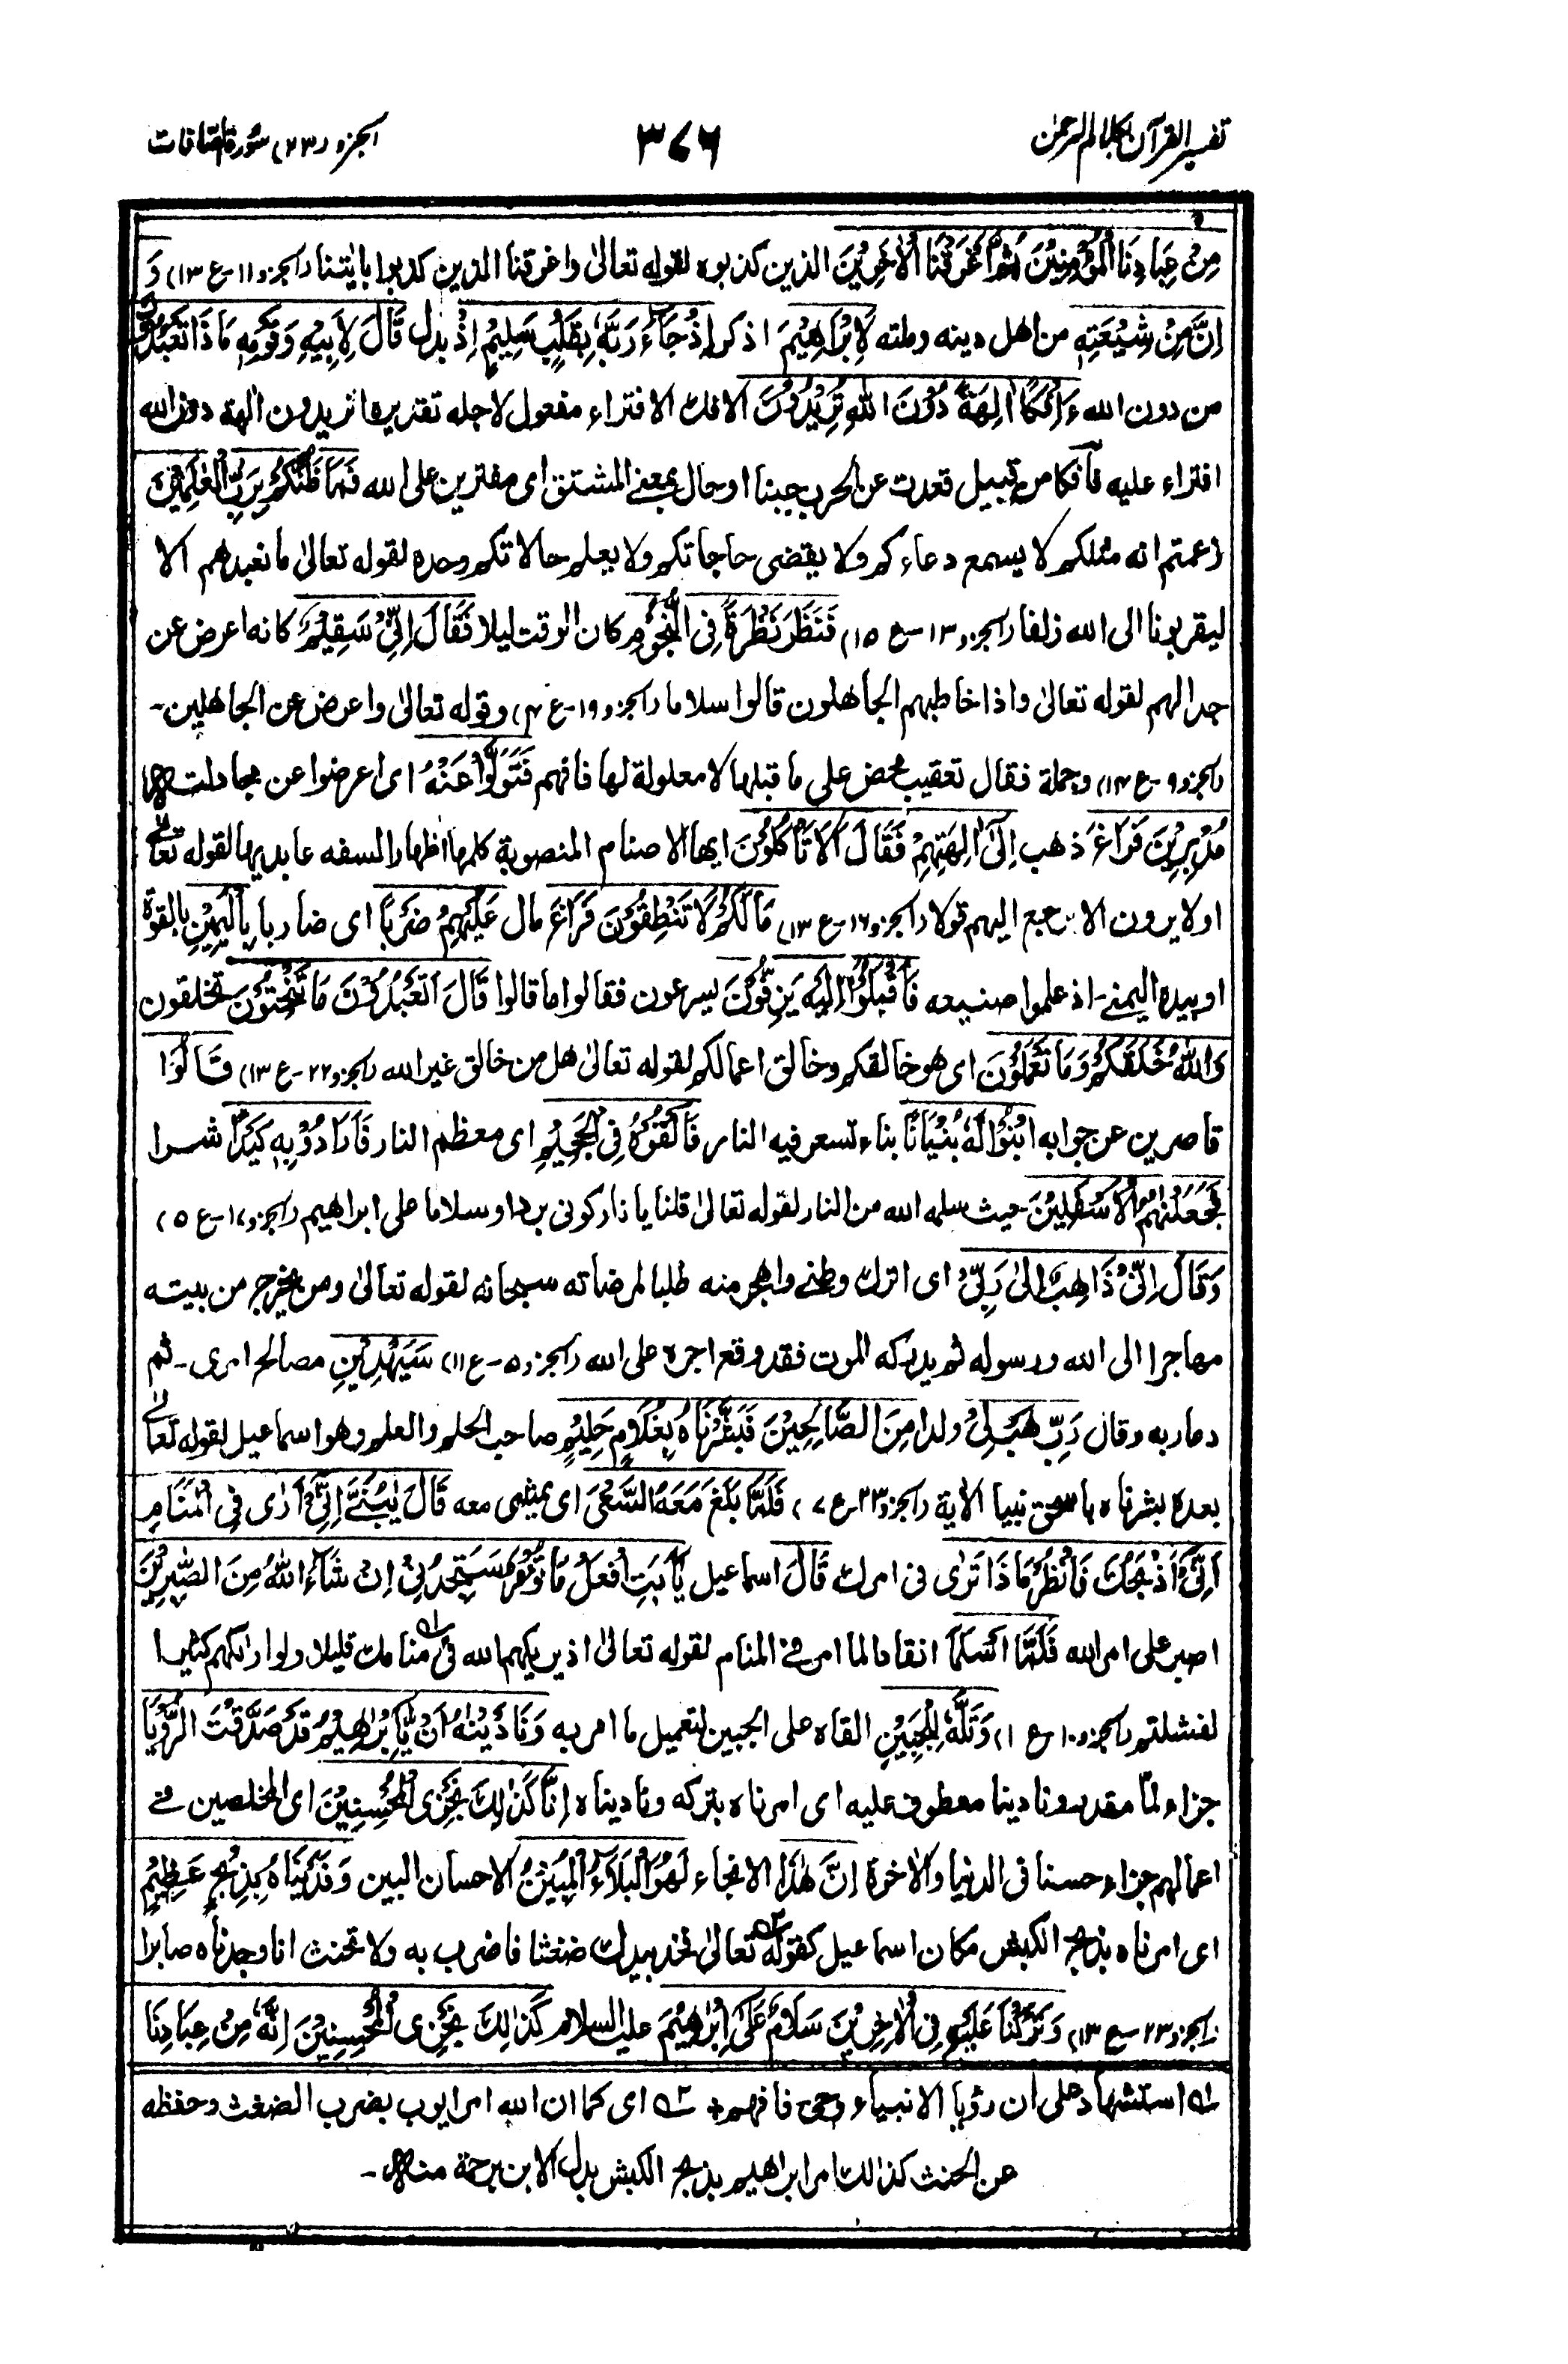 تفسير القرآن بكلام الرحمن
٣٧٦
الجزو (٢٣) سورة الصافات
مِنْ عِبَادِنَا الْمُؤْمِنِيْنَ ثُمَّ اَغْرَقْنَا الْاٰخَرِيْنَ الذين كذبوه لقوله تعالىٰ واغرقنا الذين كذبوا باٰيٰتنا (الجزو ١١-ع ١٣) وَ
اِنَّ مِنْ شِيْعَتِهٖ من اهل دينه وملته لَاِبْرَاهِيْمَ اذكر اِذْ جَآءَ رَبَّهٗ بِقَلْبٍ سَلِيْمٍ اِذْ بدل قَالَ لِاَبِيْهِ وَقَوْمِهٖ مَا ذَا تَعْبُدُوْنَ
من دون الله ءَاِفْكًا اٰلِهَةً دُوْنَ اللّٰهِ تُرِيْدُوْنَ الافك الافتراء مفعول لاجله تقديره اتريدون اٰلهة دون الله
افتراء عليه فأفكا من قبيل قعدت عن الحرب جبنا او حال بمعنے المشتق اى مفترين على الله فَمَا ظَنُّكُمْ بِرَبِّ الْعٰلَمِيْنَ
زعمتم انه مثلكم لا يسمع دعاءكم ولا يقضى حاجاتكم ولا يعلم حالاتكم وحده لقوله تعالىٰ ما نعبدهم الا
ليقربونا الى الله زلفا (الجزو ١٣-ع ١٥) فَنَظَرَ نَظْرَةً فِى النُّجُوْمِ كان الوقت ليلا فَقَالَ اِنِّىْ سَقِيْمٌ كانه اعرض عن
جدالهم لقوله تعالىٰ واذا خاطبهم الجاهلون قالوا سلاما (الجزو ١٩-ع ٤) وقوله تعالىٰ واعرض عن الجاهلين-
(الجزو ٩-ع ١٤) وجملة فقال تعقيب محض على ما قبلها لا معلولة لها فافهم فَتَوَلَّوْا عَنْهُ اى اعرضوا عن مجادلته
مُدْبِرِيْنَ فَرَاغَ ذهب اِلٰٓى اٰلِهَتِهِمْ فَقَالَ اَلَا تَاْكُلُوْنَ ايها الاصنام المنصوبة كلمها اظهارا لسفه عابديها لقوله تعالىٰ
اولا يرون الا يرجع اليهم قولا (الجزو ١٦-ع ١٣) مَا لَكُمْ لَا تَنْطِقُوْنَ فَرَاغَ مال عَلَيْهِمْ ضَرْبًا اى ضاربا بِالْيَمِيْنِ بالقوة
او بيده اليمنے-اذ علموا صنيعه فَاَقْبَلُوْٓا اِلَيْهِ يَزِفُّوْنَ يسرعون فقالوا ما قالوا قَالَ اَتَعْبُدُوْنَ مَا تَنْحِتُوْنَ تخلقون
وَاللّٰهُ خَلَقَكُمْ وَمَا تَعْمَلُوْنَ اى هو خالقكم وخالق اعمالكم لقوله تعالىٰ هل من خالق غير الله (الجزو ٢٢-ع ١٣) قَالُوْا
قاصرين عن جوابه ابْنُوْا لَهٗ بُنْيَانًا بناء تسعر فيه النار فَاَلْقُوْهُ فِى الْجَحِيْمِ اى معظم النار فَاَرَادُوْا بِهٖ كَيْدًا شرا
فَجَعَلْنٰهُمُ الْاَسْفَلِيْنَ حيث سلمه الله من النار لقوله تعالىٰ قلنا يا نار كونى بردا وسلاما على ابراهيم (الجزو ١٧-ع ٥)
وَقَالَ اِنِّىْ ذَاهِبٌ اِلىٰ رَبِّىْ اى اترك وطنے واهجر منه طلبا لمرضاته سبحانه لقوله تعالىٰ ومن يخرج من بيته
مهاجرا الى الله ورسوله ثم يدركه الموت فقد وقع اجره على الله (الجزو ٥-ع ١١) سَيَهْدِيْنِ مصالح امرى-ثم
دعا ربه وقال رَبِّ هَبْ لِىْ ولدا مِنَ الصَّالِحِيْنَ فَبَشَّرْنَاهُ بِغُلَامٍ حَلِيْمٍ صاحب الحلم والعلم وهو اسماعيل لقوله تعالىٰ
بعده بشرناه باسحٰق نبيا الاية (الجزو ٢٣-ع ٧) فَلَمَّا بَلَغَ مَعَهُ السَّعْىَ اى يمشى معه قَالَ يٰبُنَىَّ اِنِّىْٓ اَرٰى فِى الْمَنَامِ
اَنِّىْٓ اَذْبَحُكَ فَانْظُرْ مَا ذَا تَرٰى فى امرك قَالَ اسماعيل يٰٓاَبَتِ افْعَلْ مَا تُؤْمَرُ سَتَجِدُنِىْٓ اِنْ شَآءَ اللّٰهُ مِنَ الصّٰبِرِيْنَ
اصبر على امر الله فَلَمَّآ اَسْلَمَا انقادا لما امر فے المنام لقوله تعالىٰ اذ يريكهم الله فى له منامك قليلا ولو اراكهم كثيرا
لفشلتم (الجزو ١٠-ع ١) وَتَلَّهٗ لِلْجَبِيْنِ القاه على الجبين لتعميل ما امر به وَنَادَيْنٰهُ اَنْ يّٰٓاِبْرٰهِيْمُ قَدْ صَدَّقْتَ الرُّؤْيَا
جزاء لمّا مقدر ونادينا معطوف عليه اى امرناه بتركه وناديناه اِنَّا كَذٰلِكَ نَجْزِى الْمُحْسِنِيْنَ اى المخلصين فے
اعمالهم جزاء حسنا فى الدنيا والاٰخرة اِنَّ هٰذَا الانجاء لَهُوَ الْبَلَآءُ الْمُبِيْنُ الاحسان البين وَفَدَيْنَاهُ بِذِبْحٍ عَظِيْمٍ
اى امرناه بذبح الكبش مكان اسماعيل كقوله ٢ه تعالىٰ فخذ بيدك ضغثا فاضرب به ولا تحنث انا وجدناه صابرا
(الجزو ٢٣-ع ١٣) وَتَرَكْنَا عَلَيْهِ فِى الْاٰخِرِيْنَ سَلَامٌ عَلٰٓى اِبْرٰهِيْمَ عليه السلام كَذٰلِكَ نَجْزِى الْمُحْسِنِيْنَ اِنَّهٗ مِنْ عِبَادِنَا
١ه استشهاد على ان رؤيا الانبياء وحى فافهم + ٢ه اى كما ان الله امر ايوب بضرب الضغث وحفظه
عن الحنث كذالك امر ابراهيم بذبح الكبش بدل الابن برحمة منه-